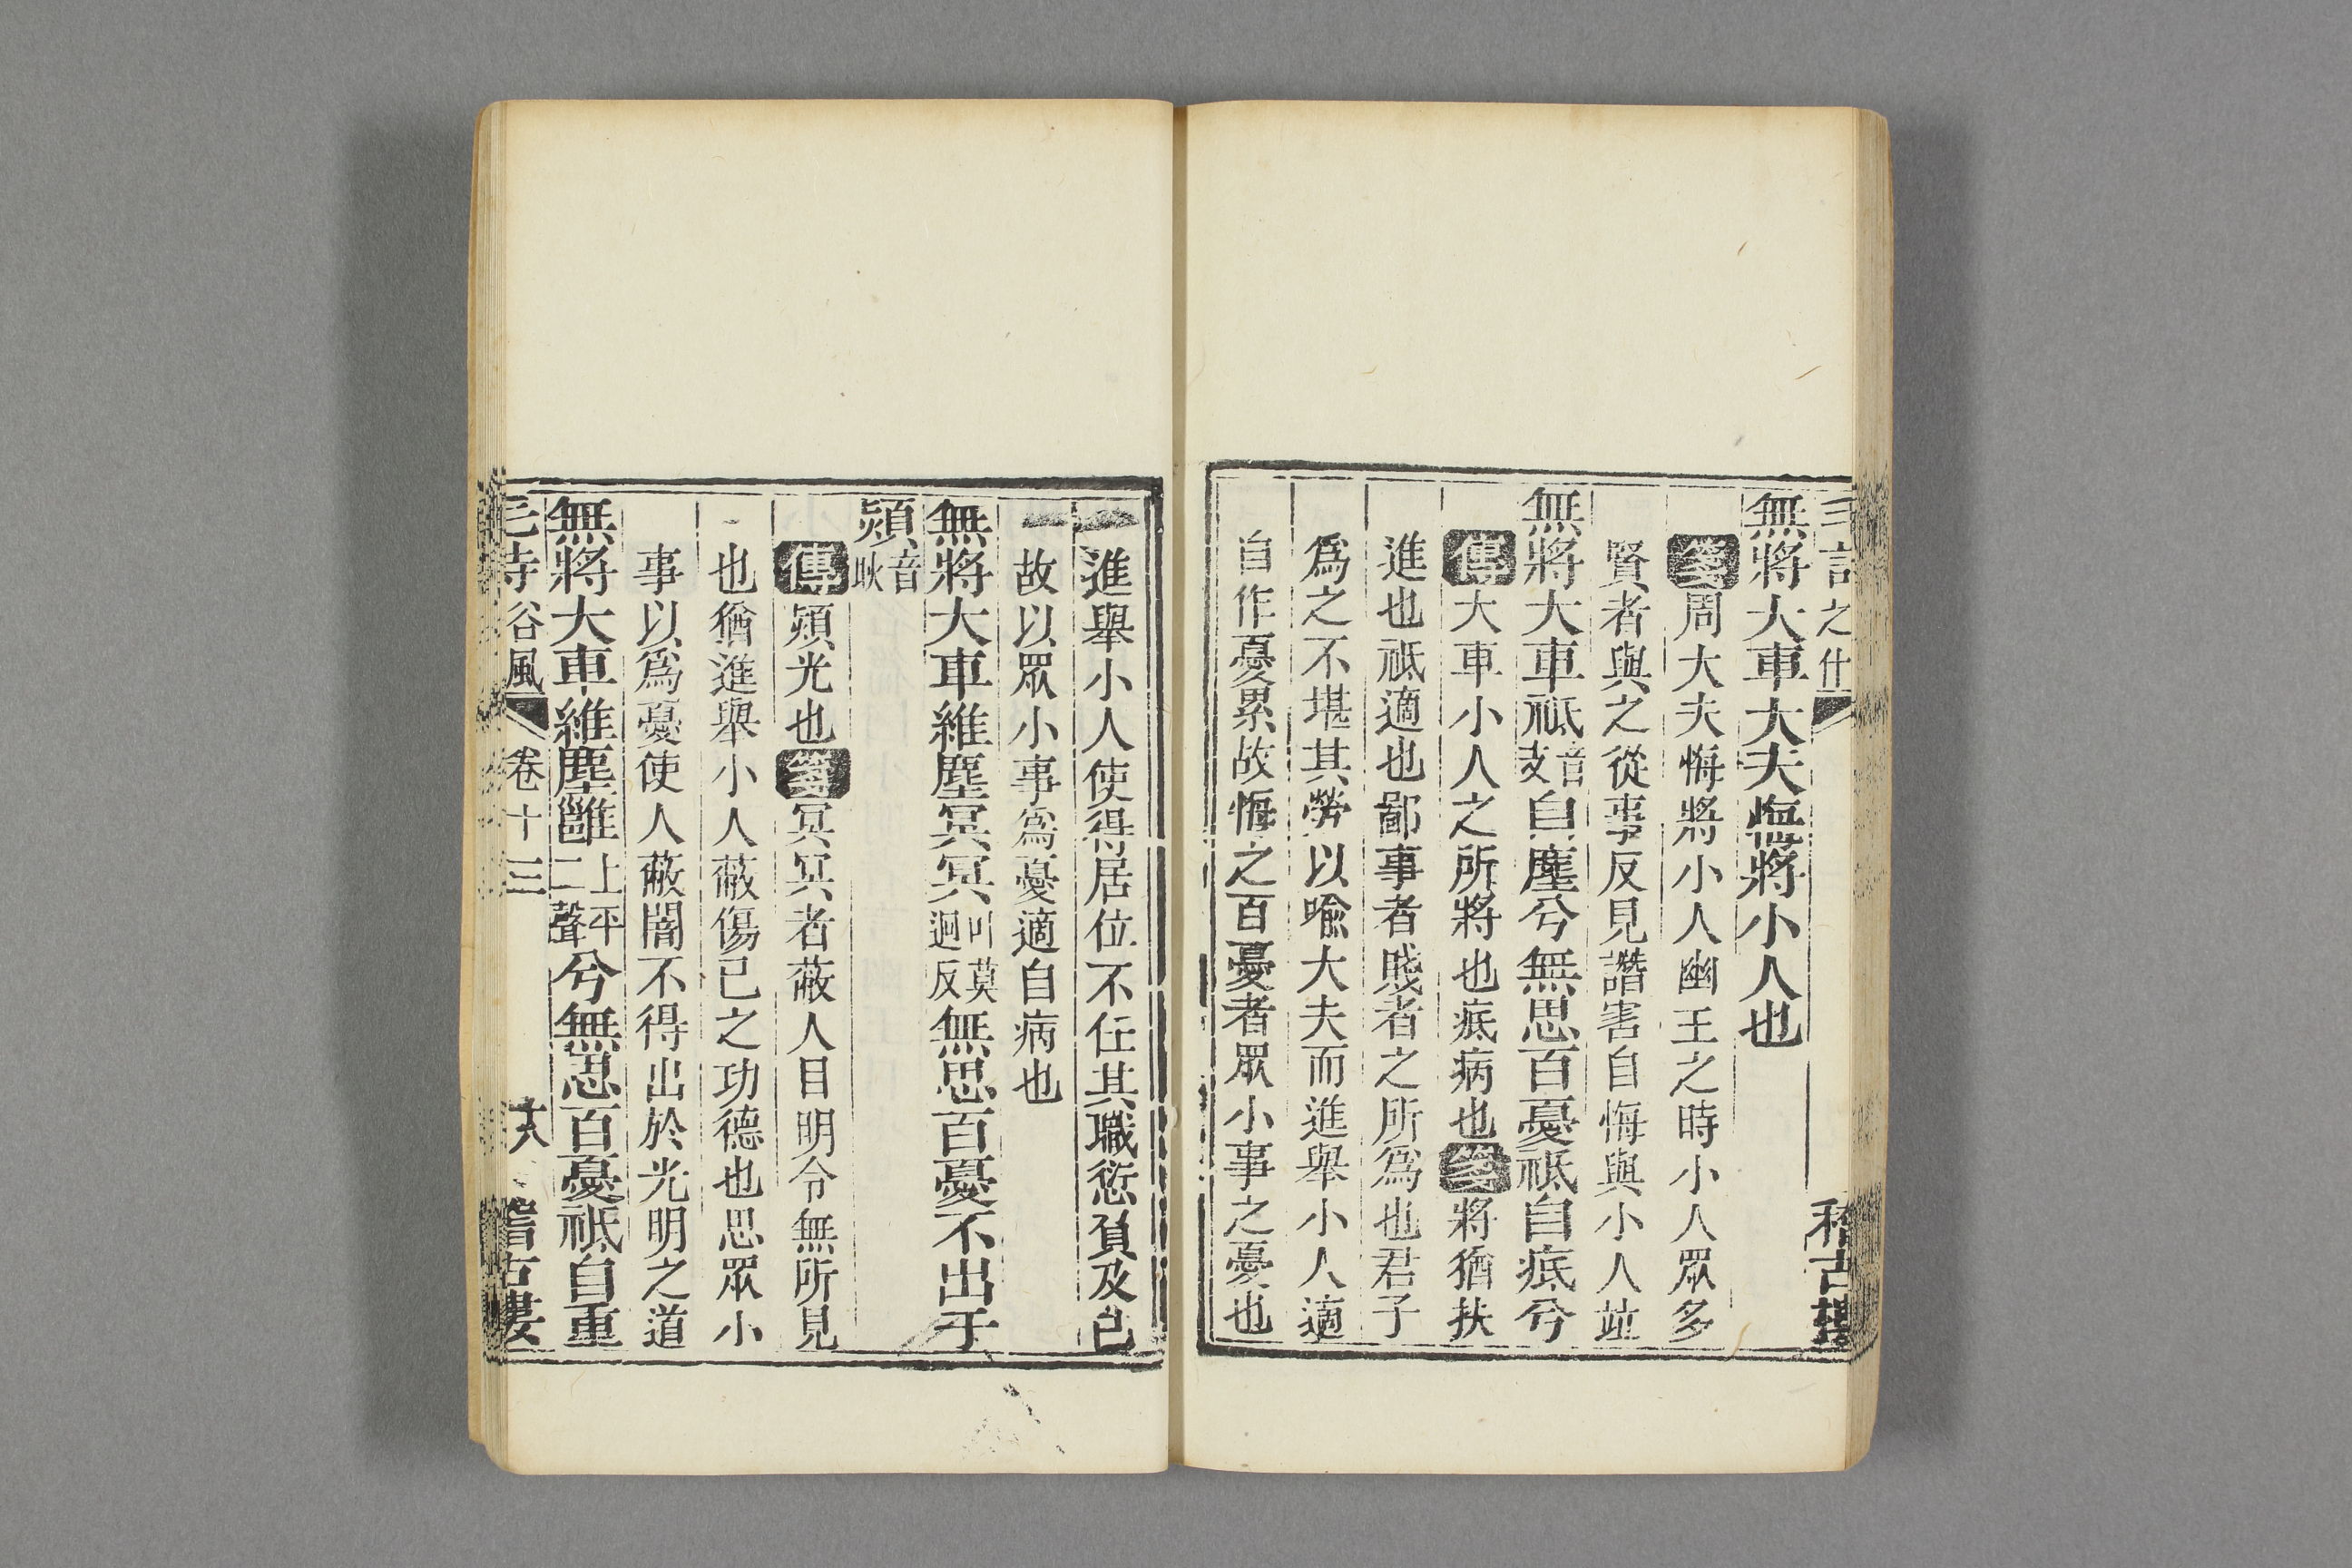 毛詩之什 稽古樓
無將大車大夫悔將小人也
箋周大夫悔將小人幽王之時小人眾多
賢者與之從事反見譖害自悔與小人竝
無將大車祗音支自塵兮無思百憂祗自疧兮
傳大車小人之所將也疧病也箋將猶扶
進也祗適也鄙事者賤者之所爲也君子
爲之不堪其勞以喻大夫而進舉小人適
自作憂累故悔之百憂者眾小事之憂也
進舉小人使得居位不任其職愆負及己
故以眾小事爲憂適自病也
無將大車維塵冥冥莫迥反無思百憂不出于
熲音耿
傳熲光也箋冥冥者蔽人目明令無所見
也猶進舉小人蔽傷己之功德也思眾小
事以爲憂使人蔽闇不得出於光明之道
無將大車維塵雝上平二聲兮無思百憂祗自重
毛詩谷風 卷十三 十八 稽古樓